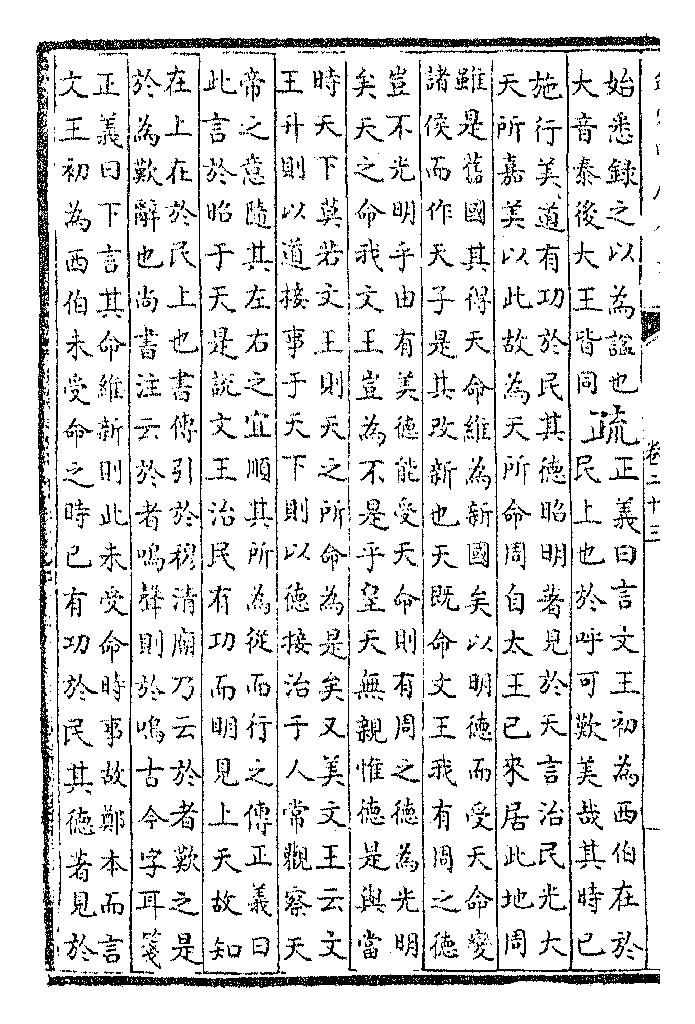 卷二十三
始悉錄之以為諡也
大音泰後大王皆同
疏
正義曰言文王初為西伯在於
民上也於呼可歎美哉其時已
施行美道有功於民其德昭明著見於天言治民光大
天所嘉美以此故為天所命周自太王已來居此地周
雖是舊國其得天命維為新國矣以明德而受天命變
諸侯而作天子是其改新也天既命文王我有周之德
豈不光明乎由有美德能受天命則有周之德為光明
矣天之命我文王豈為不是乎皇天無親惟德是與當
時天下莫若文王則天之所命為是矣又美文王云文
王升則以道接事于天下則以德接治于人常觀察天
帝之意隨其左右之宜順其所為從而行之傳正義曰
此言於昭于天是說文王治民有功而明見上天故知
在上在於民上也書傳引於穆清廟乃云於者歎之是
於為歎辭也尚書注云於者嗚聲則於嗚古今字耳箋
正義曰下言其命維新則此未受命時事故鄭本而言
文王初為西伯未受命之時已有功於民其德著見於